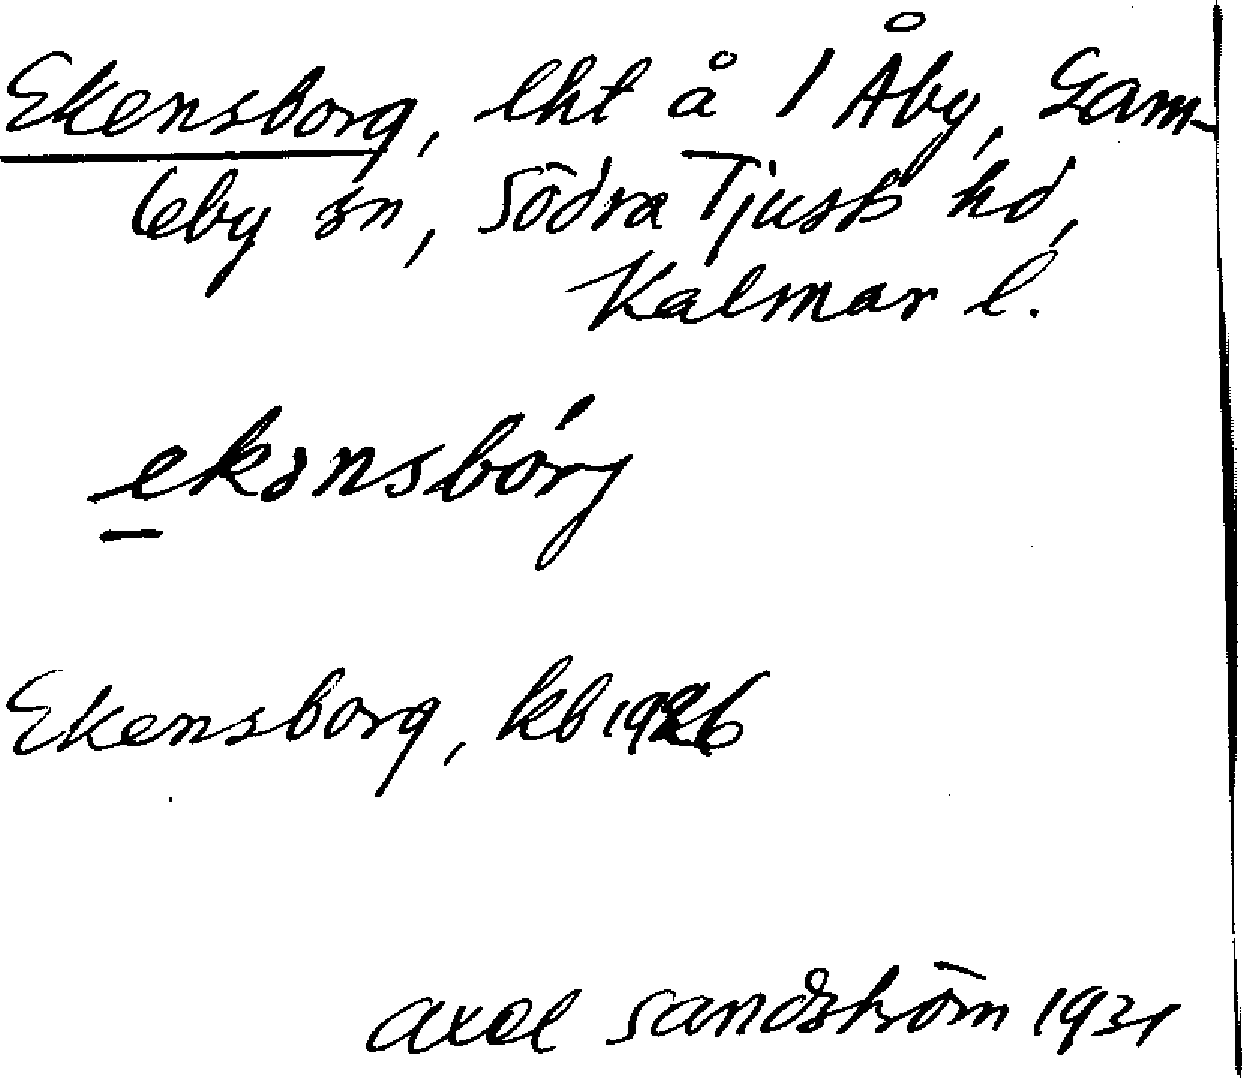 Ekensborg, lht å 1 Åby, Gam-
leby sn, Södra Tjusts hd,
Kalmar l.
ekənsbórj
Ekensborg, kb 1926
Axel Sandström 1931